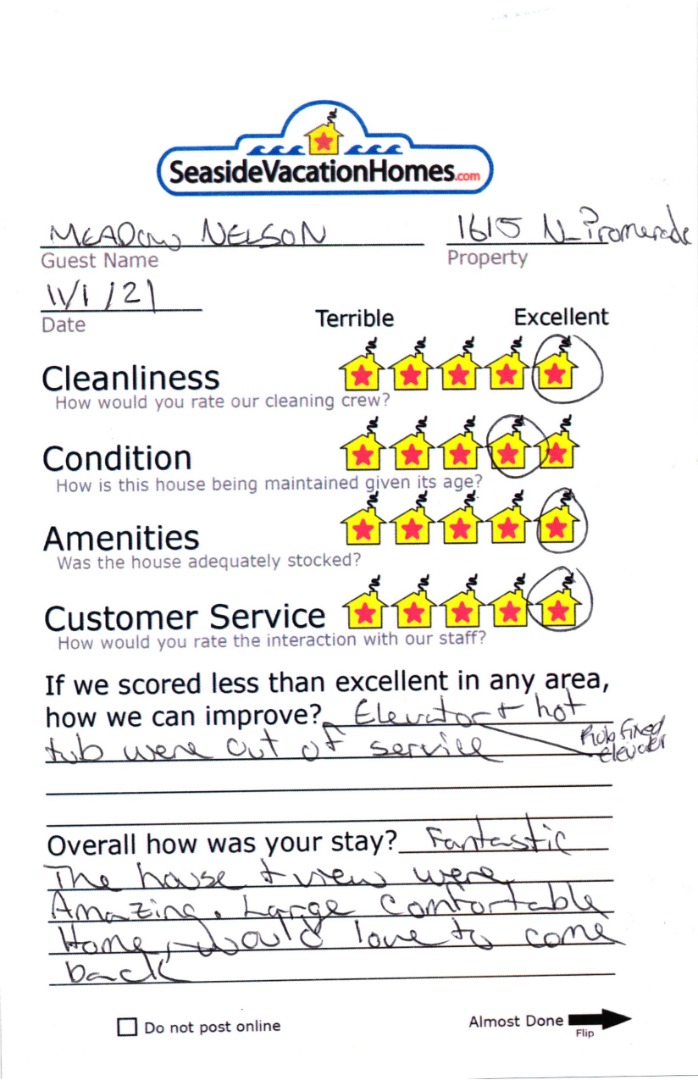 SeasideVacationHomes.com
MEADOW NELSON 1615 N. Promenade
Guest Name Property
11/1/21
Date
Terrible Excellent
Cleanliness
How would you rate our cleaning crew?
Condition
How is this house being maintained given its age?
Amenities
Was the house adequately stocked?
Customer Service
How would you rate the interaction with our staff?
If we scored less than excellent in any area,
how we can improve? Elevator + hot
tub were out of service
Rob fixed
elevator
Overall how was your stay? Fantastic
The house + view were
Amazing. Large comfortable
Home, would love to come
back
Do not post online
Almost Done
Flip